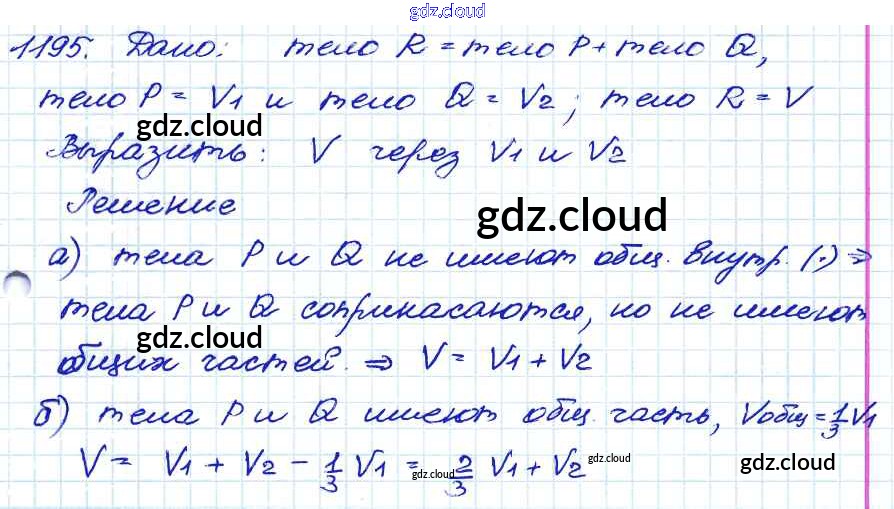 gdz.cloud
1195. Дано: тело R = тело P + тело Q,
тело P = V1 и тело Q = V2; тело R = V
gdz.cloud
Выразить: V через V1 и V2
Решение
gdz.cloud
а) тела P и Q не имеют общ. внутр. (·) ⇒
тела P и Q соприкасаются, но не имеют
gdz.cloud
общих частей. ⇒ V = V1 + V2
б) тела P и Q имеют общ. часть, Vобщ = 1/3 V1
V = V1 + V2 − 1/3 V1 = 2/3 V1 + V2
gdz.cloud gdz.cloud gdz.cloud